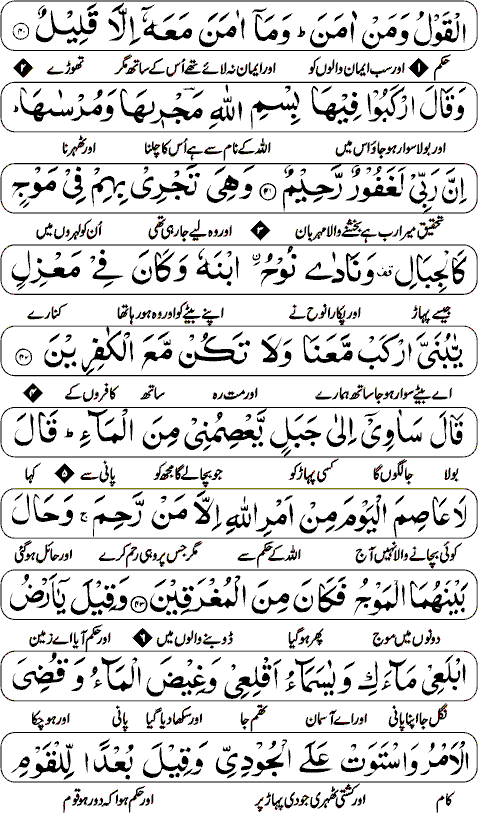 الْقَوْلُ وَمَنْ اٰمَنَ ؕ وَمَاۤ اٰمَنَ مَعَهٗۤ اِلَّا قَلِيْلٌ ﴿۴۰﴾
حکم ۱ اور سب ایمان والوں کو اور ایمان نہ لائے تھے اُس کے ساتھ مگر تھوڑے ۲
وَقَالَ ارْكَبُوْا فِيْهَا بِسْمِ اللّٰهِ مَجْرٖىهَا وَمُرْسٰىهَا ؕ
اور بولا سوار ہو جاؤ اس میں اللہ کے نام سے ہے اُس کا چلنا اور ٹھہرنا
اِنَّ رَبِّيْ لَغَفُوْرٌ رَّحِيْمٌ ﴿۴۱﴾ وَهِيَ تَجْرِيْ بِهِمْ فِيْ مَوْجٍ
تحقیق میرا رب ہے بخشنے والا مہربان ۳ اور وہ لیے جا رہی تھی اُن کو لہروں میں
كَالْجِبَالِ ۫ وَنَادٰى نُوْحُ ۨ ابْنَهٗ وَكَانَ فِيْ مَعْزِلٍ
جیسے پہاڑ اور پکارا نوح نے اپنے بیٹے کو اور وہ ہو رہا تھا کنارے
يّٰبُنَيَّ ارْكَبْ مَّعَنَا وَلَا تَكُنْ مَّعَ الْكٰفِرِيْنَ ﴿۴۲﴾
اے بیٹے سوار ہو جا ساتھ ہمارے اور مت رہ ساتھ کافروں کے ۴
قَالَ سَاٰوِيْۤ اِلٰى جَبَلٍ يَّعْصِمُنِيْ مِنَ الْمَآءِ ؕ قَالَ
بولا جا لگوں گا کسی پہاڑ کو جو بچا لے گا مجھ کو پانی سے ۵ کہا
لَا عَاصِمَ الْيَوْمَ مِنْ اَمْرِ اللّٰهِ اِلَّا مَنْ رَّحِمَ ۚ وَحَالَ
کوئی بچانے والا نہیں آج اللہ کے حکم سے مگر جس پر وہی رحم کرے اور حائل ہو گئی
بَيْنَهُمَا الْمَوْجُ فَكَانَ مِنَ الْمُغْرَقِيْنَ ﴿۴۳﴾ وَقِيْلَ يٰۤاَرْضُ
دونوں میں موج پھر ہو گیا ڈوبنے والوں میں ۶ اور حکم آیا اے زمین
ابْلَعِيْ مَآءَكِ وَيٰسَمَآءُ اَقْلِعِيْ وَغِيْضَ الْمَآءُ وَقُضِيَ
نگل جا اپنا پانی اور اے آسمان تھم جا اور سکھا دیا گیا پانی اور ہو چکا
الْاَمْرُ وَاسْتَوَتْ عَلَى الْجُوْدِيِّ وَقِيْلَ بُعْدًا لِّلْقَوْمِ
کام اور کشتی ٹھہری جودی پہاڑ پر اور حکم ہوا کہ دور ہو قوم